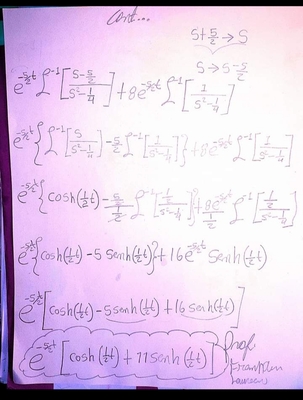 cont...
S+5/2 → S
S → S-5/2
e^(-5/2 t) ℒ⁻¹[(S-5/2)/(S²-1/4)] + 8e^(-5/2 t) ℒ⁻¹[1/(S²-1/4)]
e^(-5/2 t) {ℒ⁻¹[S/(S²-1/4)] - 5/2 ℒ⁻¹[1/(S²-1/4)]} + 8e^(-5/2 t) ℒ⁻¹[1/(S²-1/4)]
e^(-5/2 t) {cosh(1/2 t) - (5/2)/(1/2) ℒ⁻¹[(1/2)/(S²-1/4)]} + 8e^(-5/2 t)/(1/2) ℒ⁻¹[(1/2)/(S²-1/4)]
e^(-5/2 t) {cosh(1/2 t) - 5 Senh(1/2 t)} + 16e^(-5/2 t) Senh(1/2 t)
e^(-5/2 t) [cosh(1/2 t) - 5senh(1/2 t) + 16 Senh(1/2 t)]
e^(-5/2 t) [cosh(1/2 t) + 11 senh(1/2 t)]
Prof
Franklin